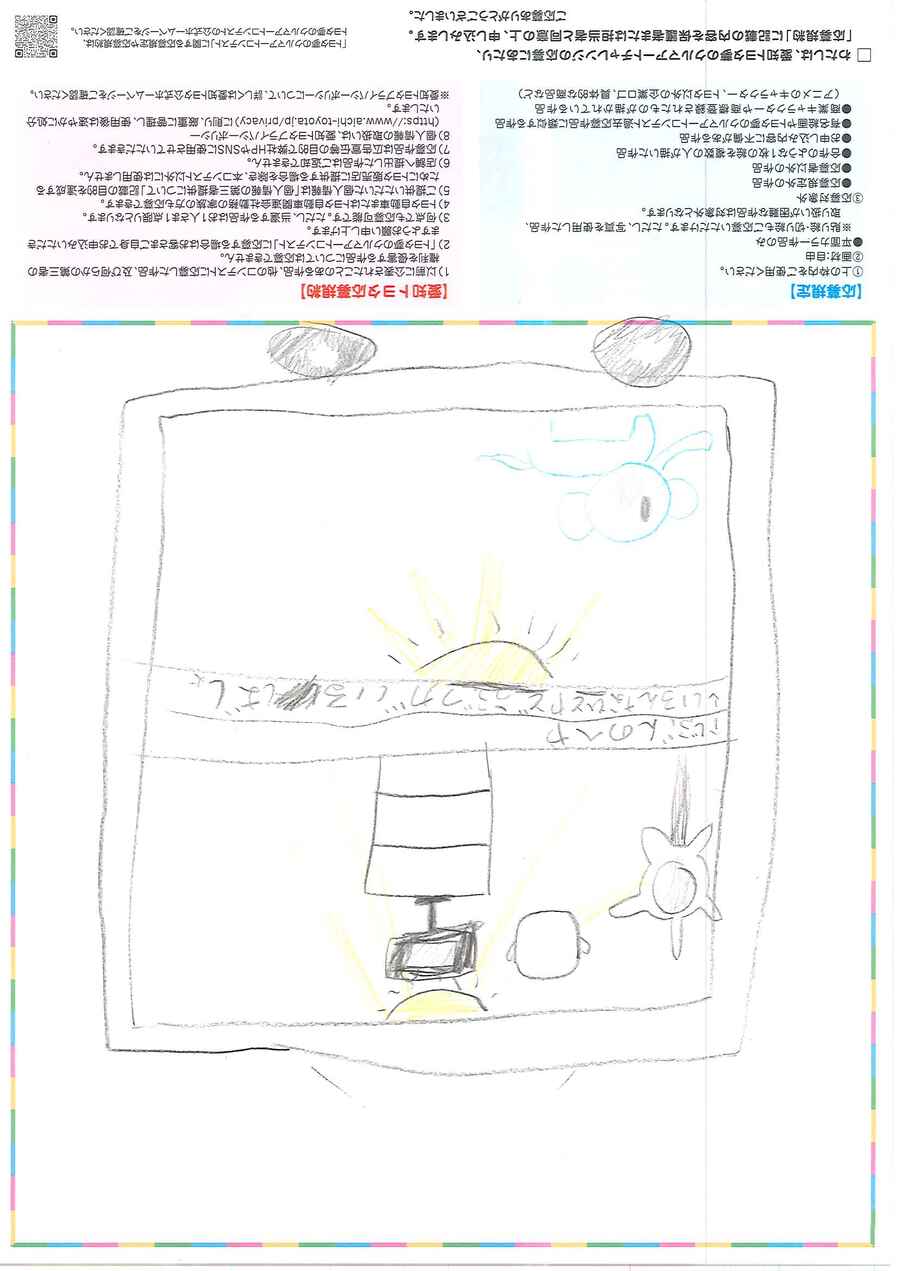 じぶんのへや
いろんなひとやどうぶつがいるばしょ
【応募規定】
①上の枠内をご使用ください。
②画材:自由
●平面カラー作品のみ
※貼り絵・切り絵もご応募いただけます。ただし、写真を使用した作品、
取り扱いが困難な作品は対象外となります。
③応募対象外
●応募規定外の作品
●応募者以外の作品
●合作のような1枚の絵を複数の人が描いた作品
●お申し込み内容に不備がある作品
●有名絵画やトヨタ夢のクルマアートコンテスト過去応募作品に類似する作品
●商業キャラクターや商標登録されたものが描かれている作品
(アニメのキャラクター、トヨタ以外の企業ロゴ、具体的な商品など)
【愛知トヨタ応募規約】
1)以前に公表されたことのある作品、他のコンテストに応募した作品、及び何らかの第三者の
権利を侵害する作品については応募できません。
2)「トヨタ夢のクルマアートコンテスト」に応募する場合はお客さまご自身でお申込みいただき
ますようお願い申し上げます。
3)何点でも応募可能です。ただし、当選する作品はお1人さま1点限りとなります。
4)トヨタ自動車またはトヨタ自動車関連会社勤務の家族の方も応募できます。
5)ご提供いただいた個人情報は「個人情報の第三者提供について」記載の目的を達成する
ためにトヨタ販売店に提供する場合を除き、本コンテスト以外には使用しません。
6)店舗へ提出した作品はご返却できません。
7)応募作品は広告宣伝等の目的で弊社HPやSNSに使用させていただきます。
8)個人情報の取扱いは、愛知トヨタプライバシーポリシー
(https://www.aichi-toyota.jp/privacy)に則り、厳重に管理し、使用後は速やかに処分
いたします。
※愛知トヨタプライバシーポリシーについて、詳しくは愛知トヨタ公式ホームページをご確認ください。
□ わたしは、愛知トヨタ夢のクルマアートチャレンジの応募にあたり、
「応募規約」に記載の内容を保護者または担当者と同意の上、申し込みします。
ご応募ありがとうございました。
「トヨタ夢のクルマアートコンテスト」に関する応募規定や応募規約は、
トヨタ夢のクルマアートコンテストの公式ホームページをご確認ください。